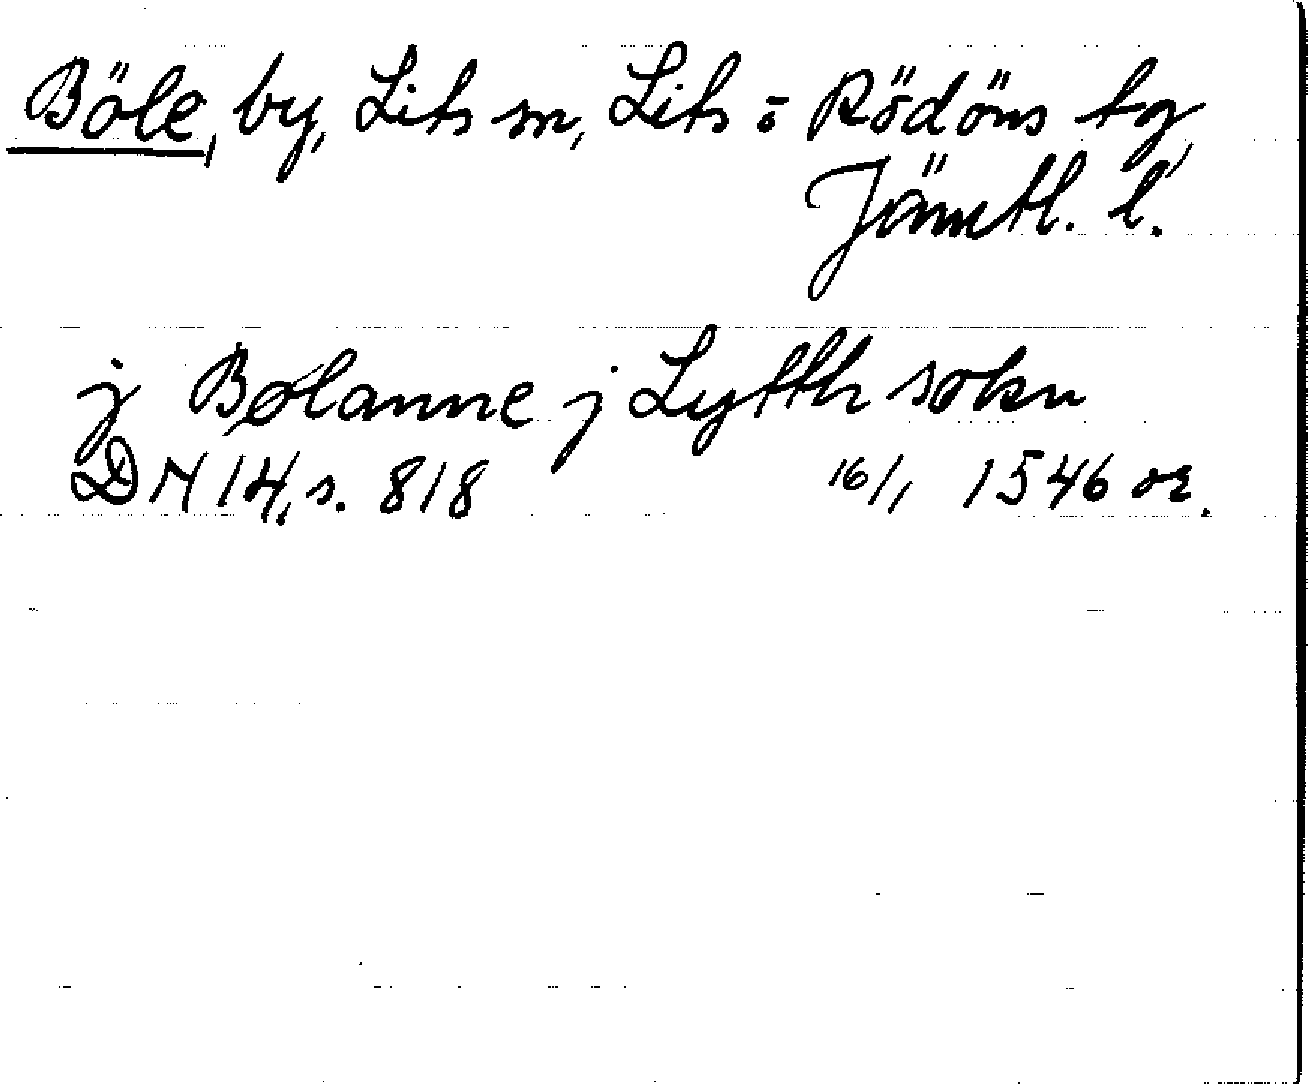 Böle, by, Lits sn, Lits o Rödöns tg,
Jämtl. l.
j Bølanne j Lytth sokn
DN 14, s. 818 16/1 1546 or.